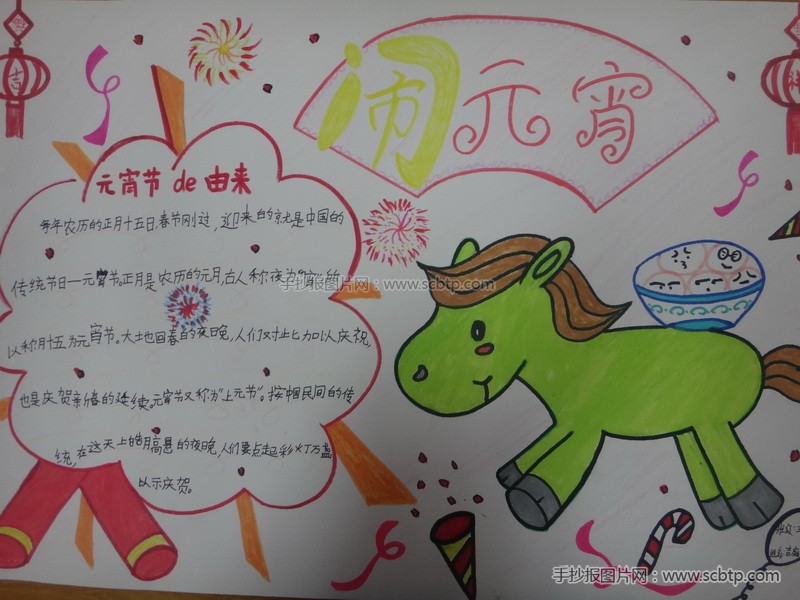 闹元宵
吉
元宵节 de 由来
每年农历的正月十五日,春节刚过,迎来的就是中国的
传统节日一元宵节。正月是农历的元月,古人称夜为"宵"的
以称月十五为元宵节。大土也回春的夜晚,人们对此加以庆祝,
也是庆贺新春的延续。元宵节又称为"上元节"。按中国民间的传
统,在这天上皓月高悬的夜晚,人们要点起彩灯万盏
以示庆贺。
手抄报图片网:www.scbtp.com
手抄报图片网:www.scbtp.com